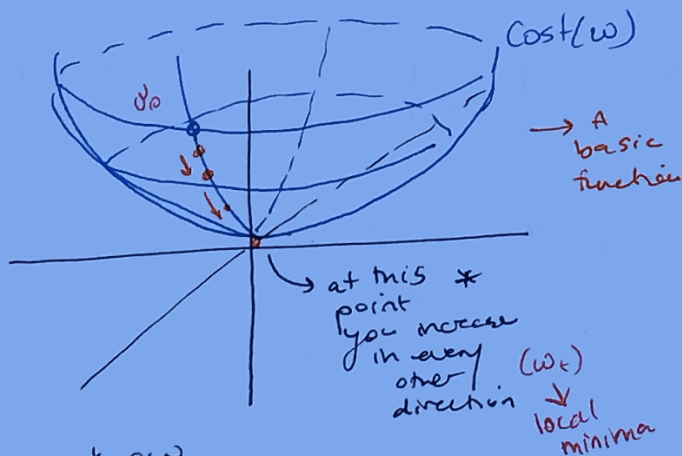 Cost(w)
→ A
basic
function
at this *
point
you increase
in every
other
direction
(wₜ)
local
minima